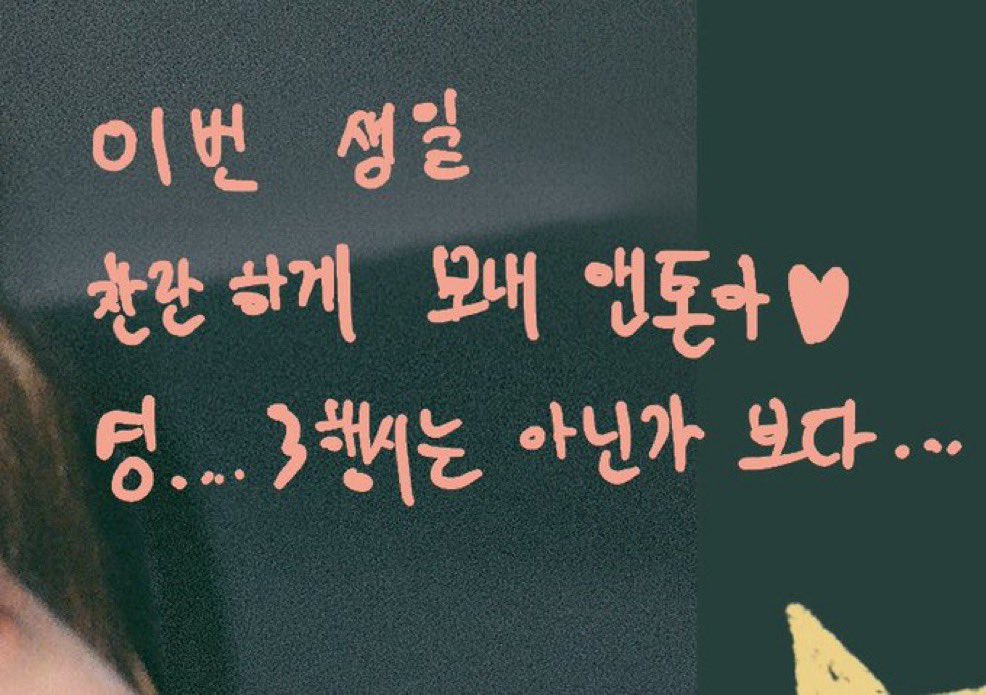 이번 생일
찬란하게 보내 앤톤아♥
영.... 3행시는 아닌가 보다...